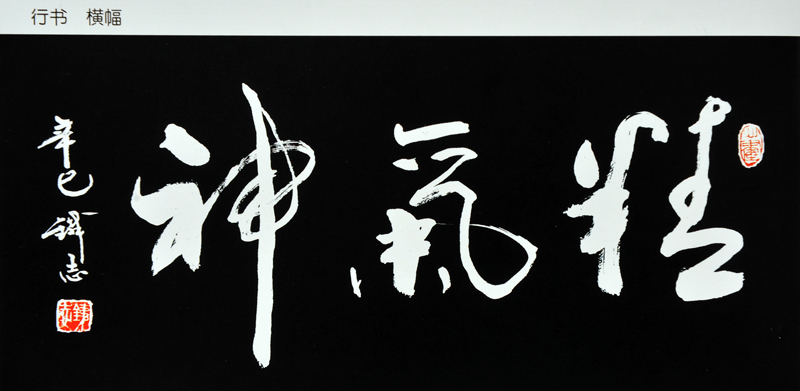 行书 横幅
精氣神
辛巳 志